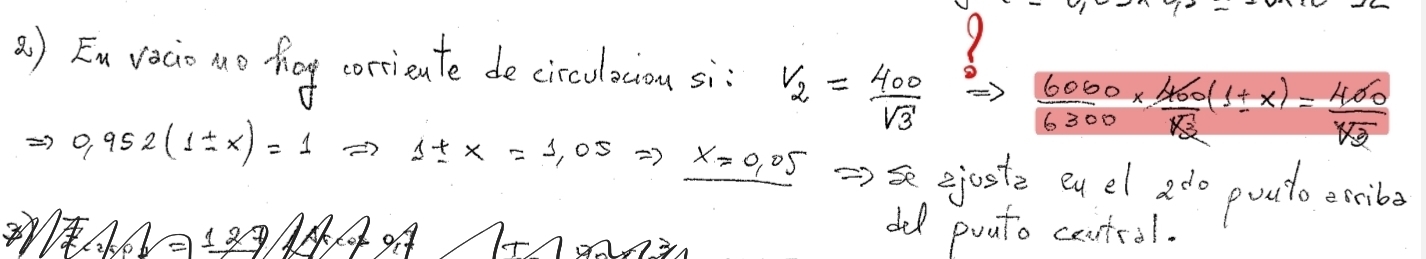 2) En vacio no hay corriente de circulacion si: V₂ = 400/√3 ? => 6000/6300 × 400/√3 (1 ± x) = 400/√3
=> 0,952 (1 ± x) = 1 => 1 ± x = 1,05 => x = 0,05 => se ajusta en el 2do punto arriba
del punto central.